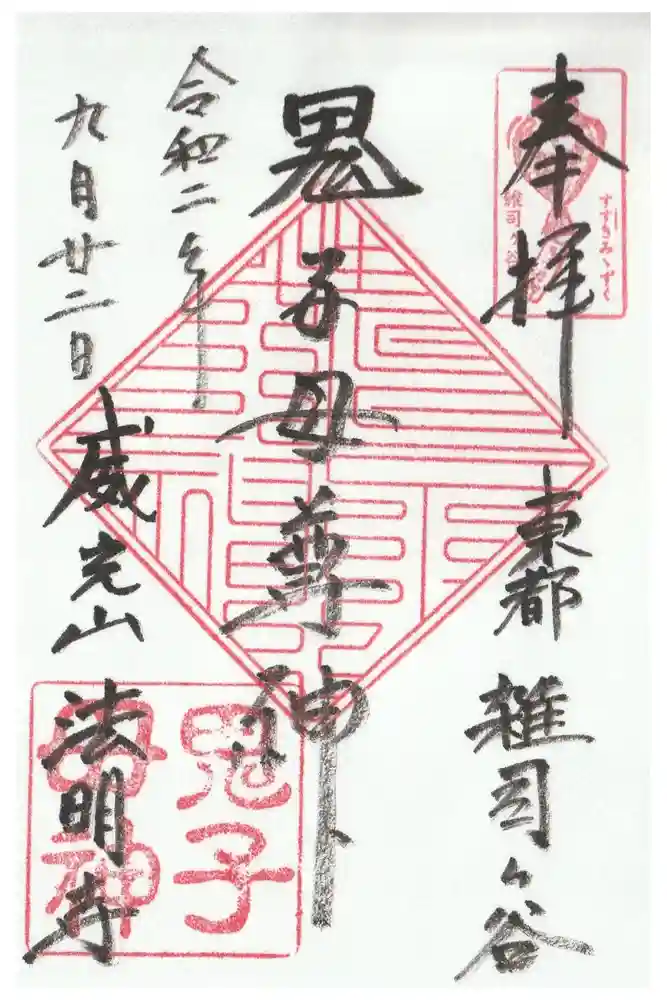 奉拝
すゞきみゝずく
雑司ヶ谷
東都
雑司ヶ谷
鬼子母尊神
令和二年
九月廿二日
威光山
法明寺
鬼子
母神